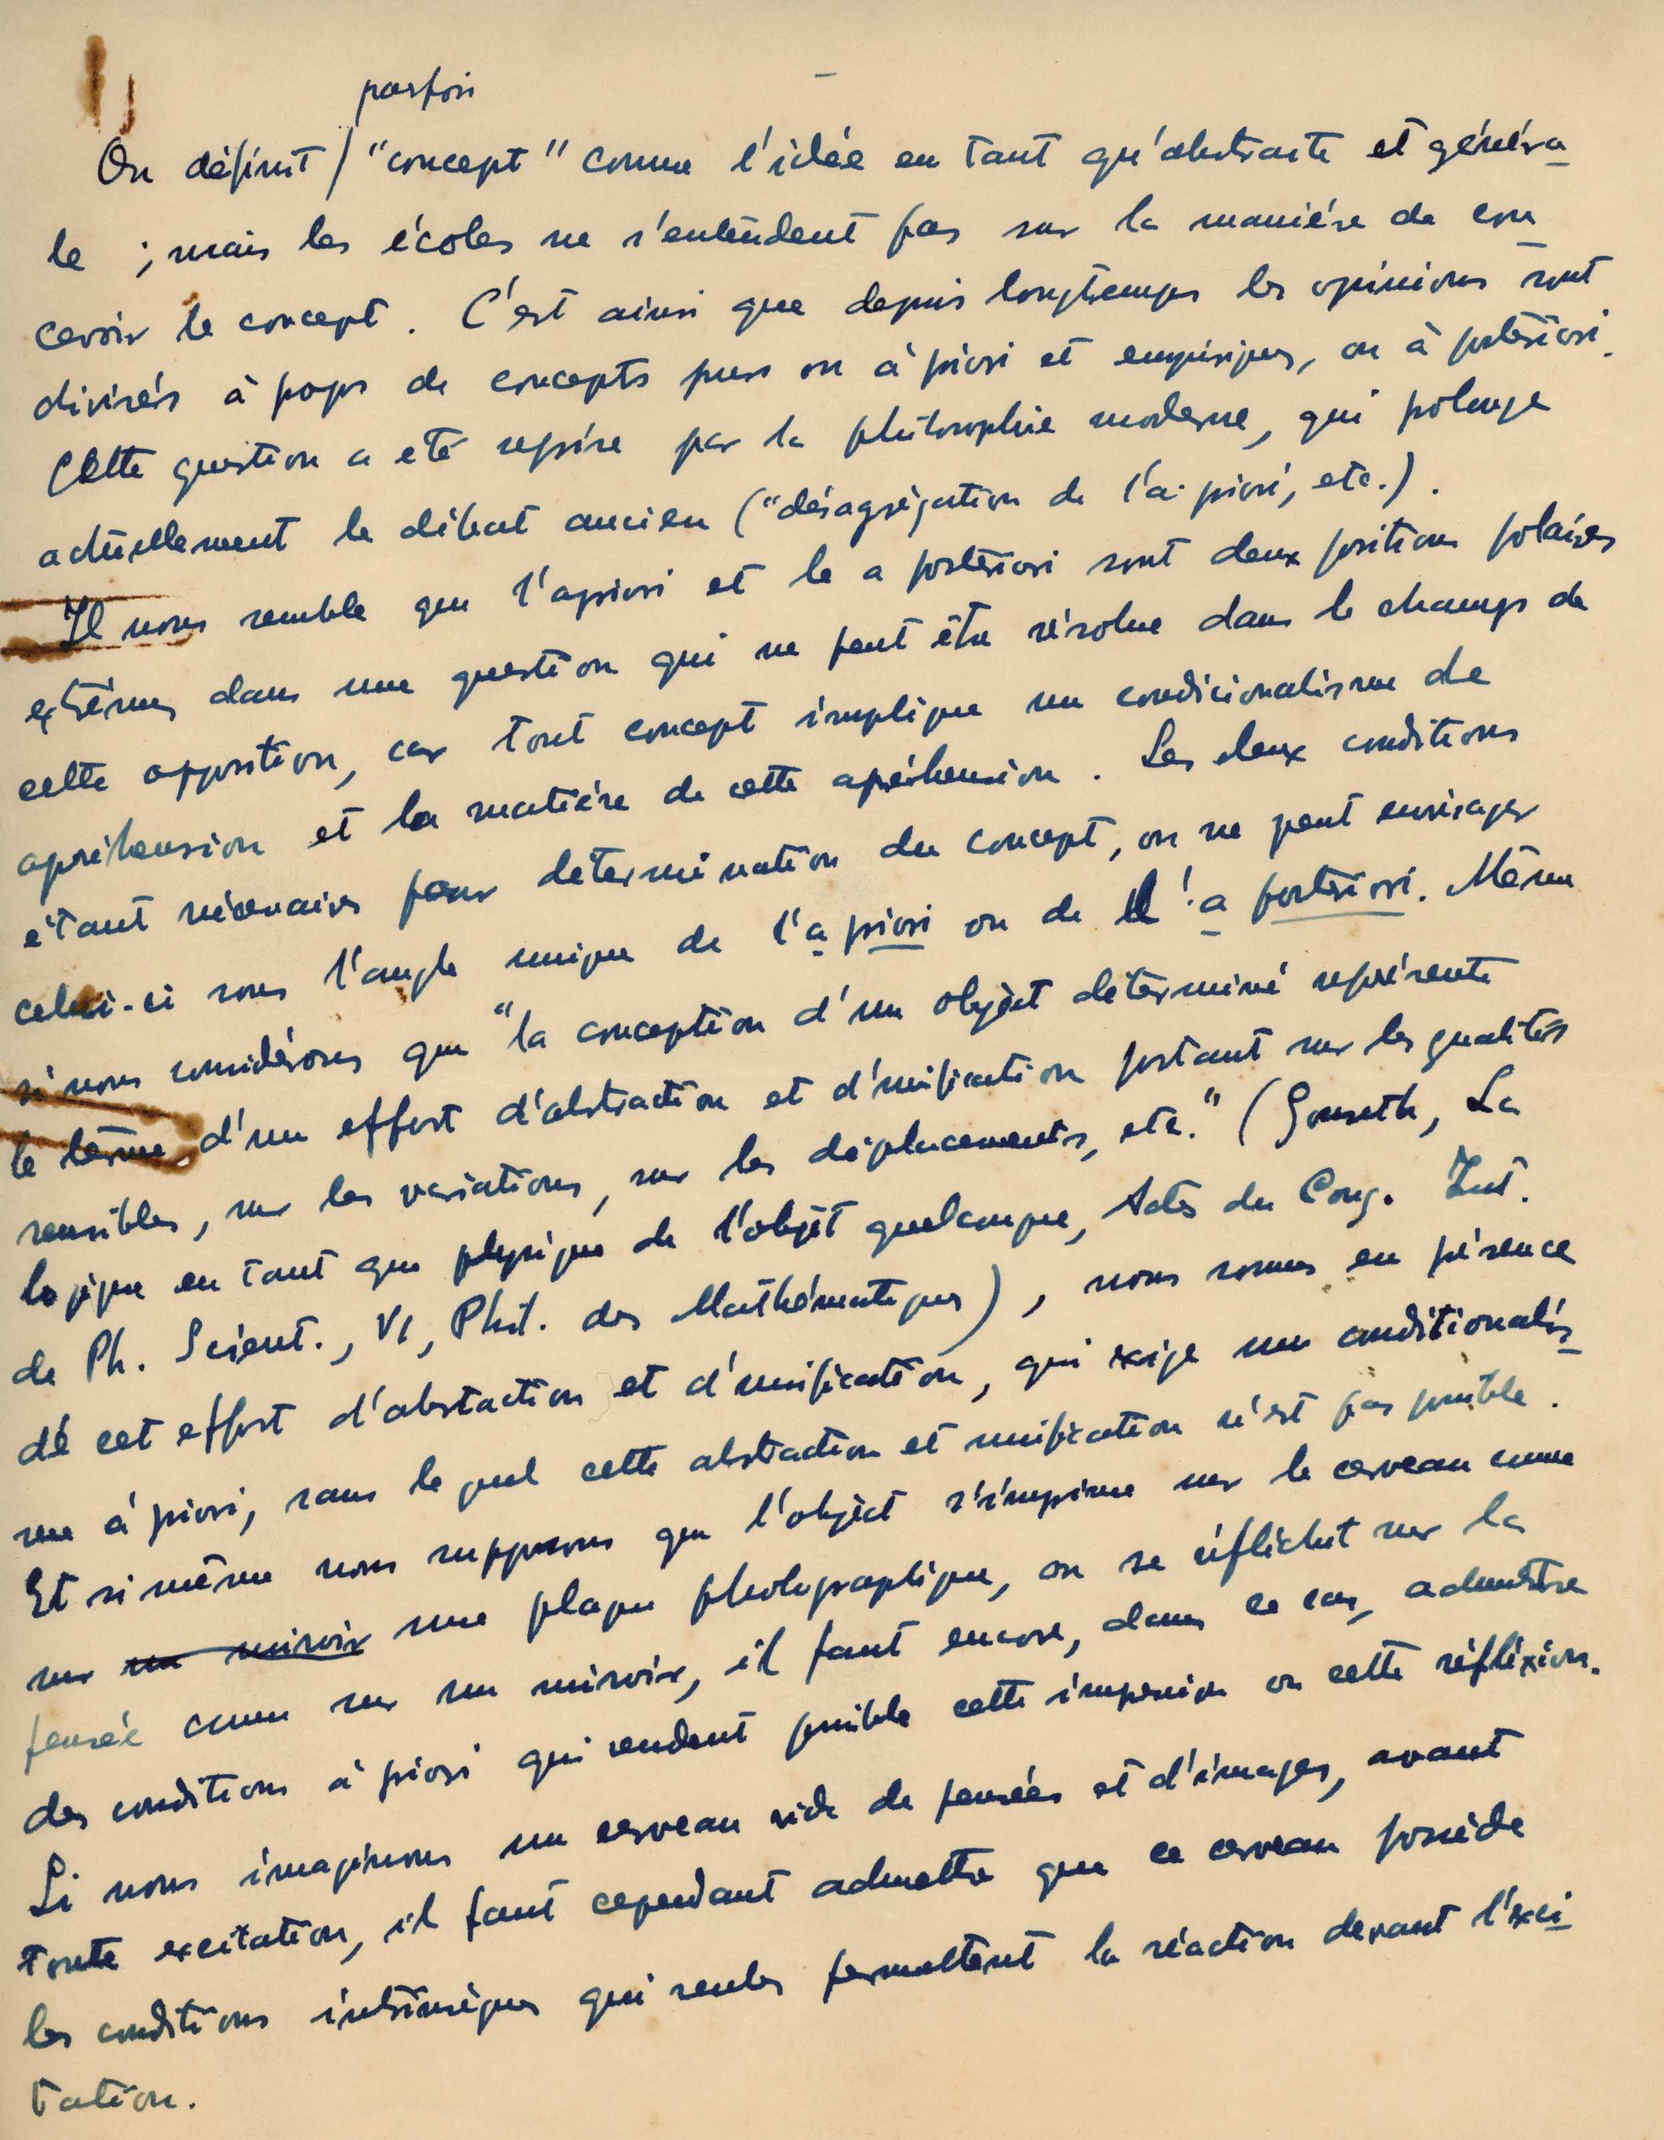 parfois
On définit / "concept" comme l'idée en tant qu'abstraite et généra
le ; mais les écoles ne s'entendent pas sur la manière de con
cevoir le concept. C'est ainsi que depuis longtemps les opinions sont
divisés à props de concepts purs ou à priori et empiriques, ou à postériori.
Cette question a eté reprise par la philosophie moderne, qui prolonge
actuellement le débat ancien ("désagrégation de l'a-priori, etc.).
Il nous semble que l'apriori et le a postériori sont deux positions polaires
extrêmes dans une question qui ne peut être résolue dans le champs de
cette opposition, car tout concept implique un condicionalisme de
apréhension et la matière de cette apréhension. Les deux conditions
étant nécessaires pour détermination du concept, on ne peut envisager
celui-ci sous l'angle unique de l'a priori ou de l'a postériori. Même
si nous considérons que "la conception d'un objèct déterminé représente
le terme d'un effort d'abstraction et d'unification portant sur les qualités
sensibles, sur les variations, sur les déplacements, etc." (Gonseth, La
logique en tant que physique de l'objèt quelconque, Actes du Cong. Int.
de Ph. Scient., VI, Phil. des Mathématiques), nous somes en présence
dé cet effort d'abstraction et d'unification, qui exige un conditionalis
me à priori, sans le quel cette abstraction et unification n'est pas possible.
Et si même nous supposons que l'objèct s'imprime sur le cerveau comme
sur un miroir une plaque photographique, ou se réfléchit sur la
pensée comme sur un miroir, il faut encore, dans ce cas, admettre
des conditions à priori qui rendent possible cette impression ou cette réfléxion.
Si nous imaginons un cerveau vide de pensées et d'images, avant
toute excitation, il faut cependant admettre que ce cerveau possède
les conditions intrinsèques qui seules permettent la réaction devant l'exci
tation.